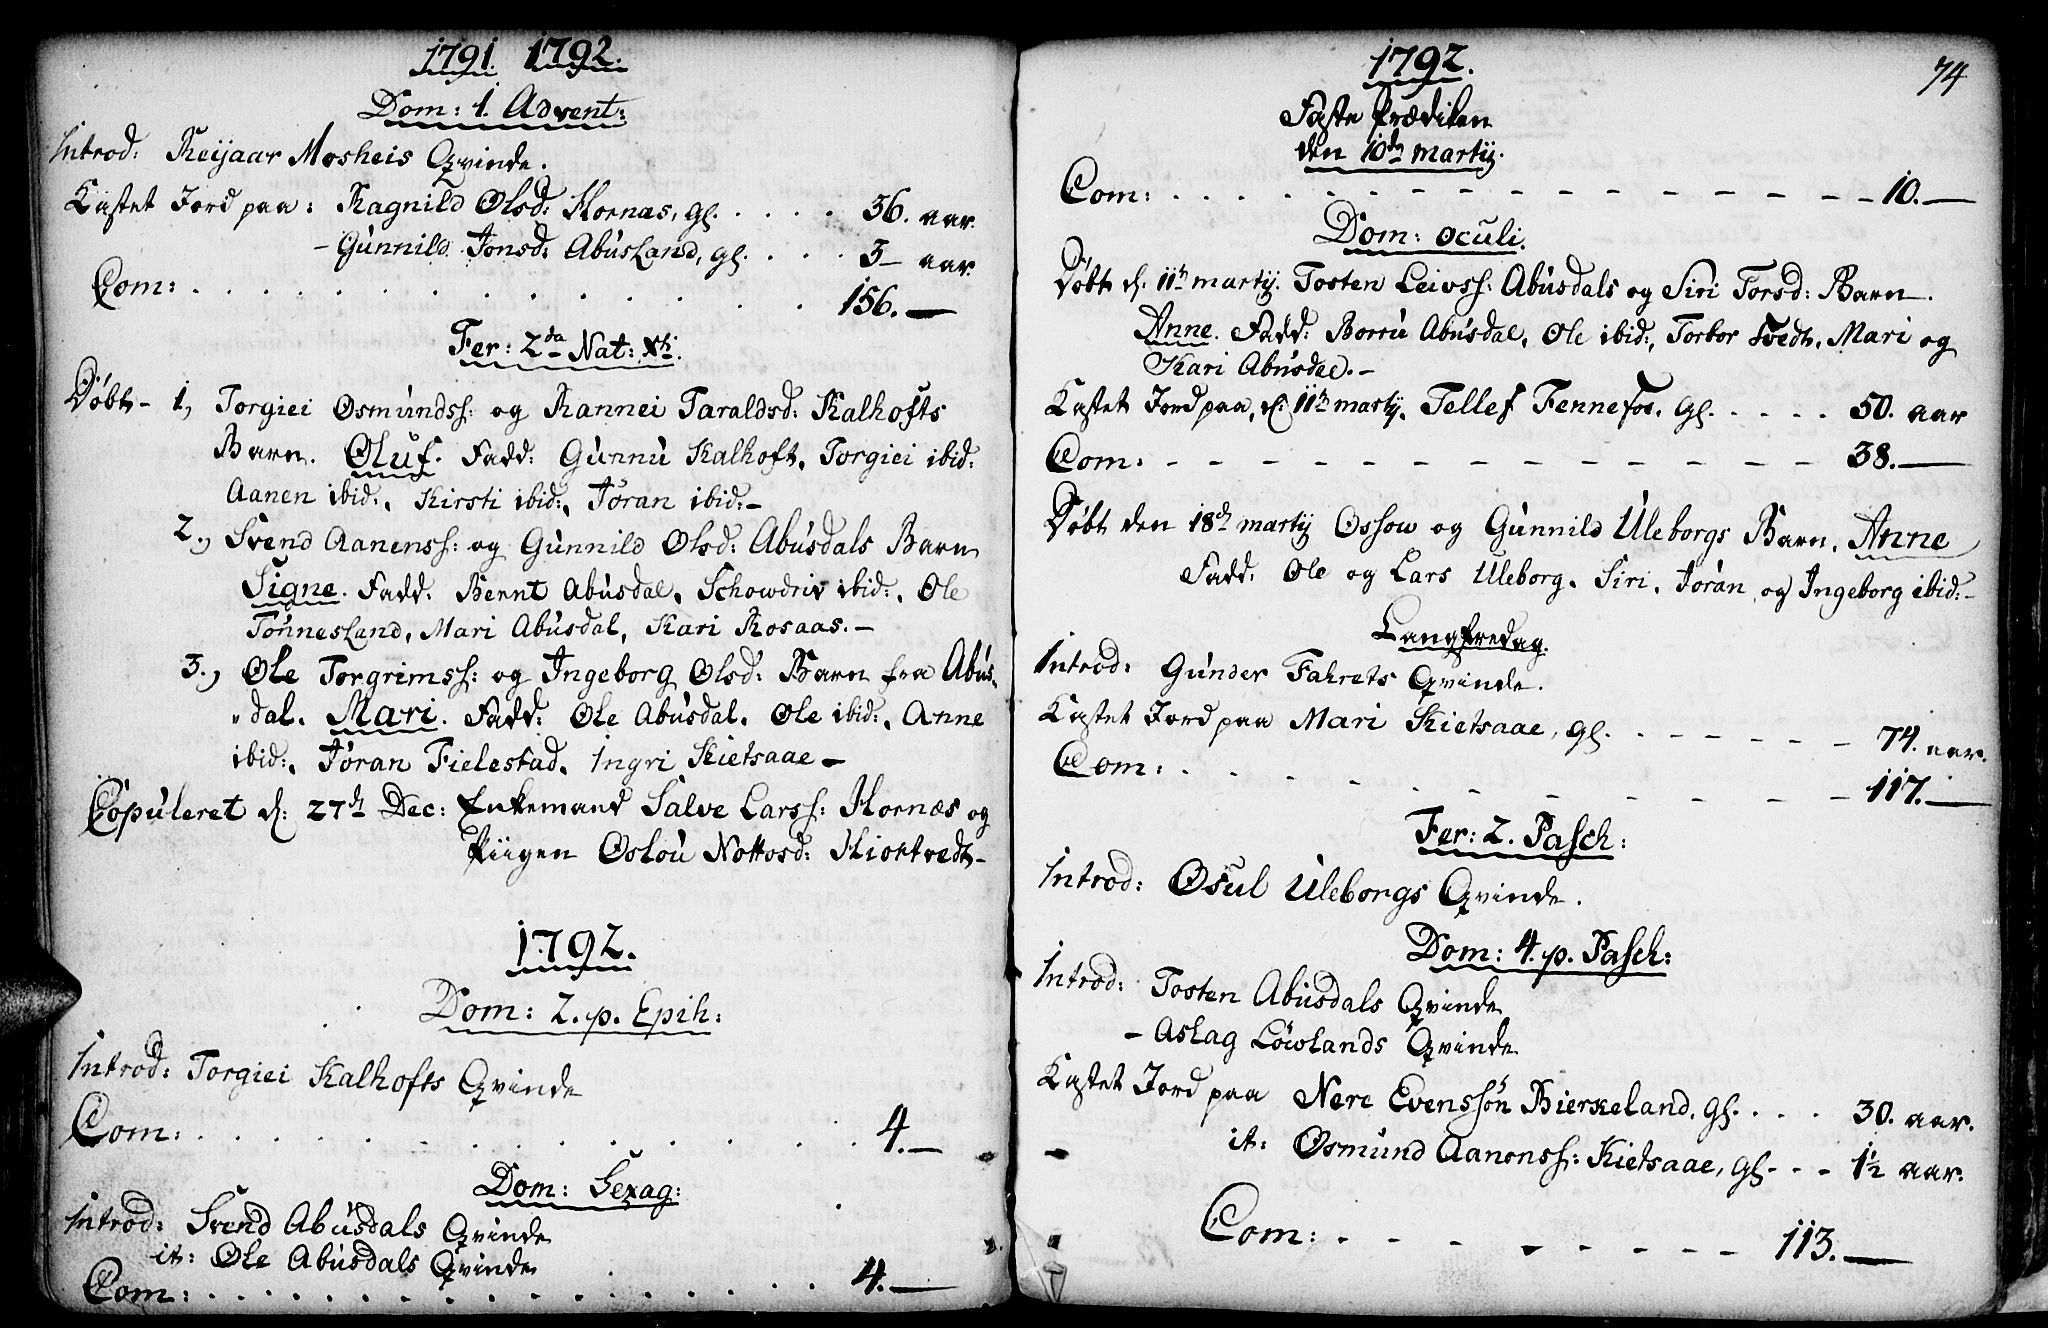 1791. 1792.
Dom: 1. Advent:
Introd: Reijaar Mosheis Qvinde.
Kastet Jord paa: Ragnild Olsd: Hornæs, gl. . . . . 36. aar.
- Gunnild Jonsd: Abusland, gl. . . . . 3 - aar.
Com: . . . . . . . . . . . 156. —
Fer: 2da Nat: Xti.
Døbt - 1, Torgiei Osmundss: og Rannei Taraldsd: Kalhofts
Barn. Oluf. Fadd: Gunnu Kalhoft, Torgiei ibid:
Aanen ibid:, Kirsti ibid:, Jøran ibid: -
2., Svend Aanenss: og Gunnild Olsd: Abusdals Barn
Signe. Fadd. Bernt Abusdal, Schowdriv ibid:, Ole
Tønnesland, Mari Abusdal, Kari Rosaas. -
3., Ole Torgrimss: og Ingeborg Olsd: Barn fra Abus-
„dal. Mari. Fadd: Ole Abusdal, Ole ibid:, Anne
ibid:, Jøran Fielestad, Ingri Kietsaae -
Copuleret d: 27de Dec: Enkemand Salve Larss: Hornæs og
Piigen Oslou Nottosd: Hiortvedt -
1792.
Dom: 2. p. Epih:
Introd: Torgiei Kalhofts Qvinde
Com: . . . . . . . . . . . 4. —
Dom: Sexag:
Introd: Svend Abusdals Qvinde
it: Ole Abusdals Qvinde
Com: . . . . . . . . . . . 4. —
1792.
74
Faste Prædiken
den 10de martij.
Com: . . . . - - - - - - - - - 10. —
Dom: oculi.
Døbt d. 11te martij. Tosten Leivss: Abusdals og Siri Torsd: Barn.
Anne. Fadd: Borru Abusdal, Ole ibid:, Torbor Tvedt, Mari og
Kari Abusdal. -
Kastet Jord paa, d: 11te martij, Tellef Fennefos, gl. . . . . 50. aar
Com: - - - - - - - - - - - - 38. —
Døbt den 18de martij Ossow og Gunnild Uleborgs Barn, Anne
Fadd: Ole og Lars Uleborg, Siri, Jøran, og Ingeborg ibid: -
Langfredag.
Introd: Gunder Fahrets Qvinde.
Kastet Jord paa Mari Kietsaae, gl. . - - - - - 74. aar.
Com: . . . . - - - - - - - 117. —
Fer: 2. Pasch:
Introd: Osul Uleborgs Qvinde.
Dom: 4. p. Pasch:
Introd: Tosten Abusdals Qvinde
- Aslag Løwlands Qvinde
Kastet Jord paa Nere Evenssøn Bierkeland, gl. . . . 30. aar.
it: Osmund Aanonss: Kietsaae, gl. - - - 1½ aar.
Com: . - - - - - - - - 113. —